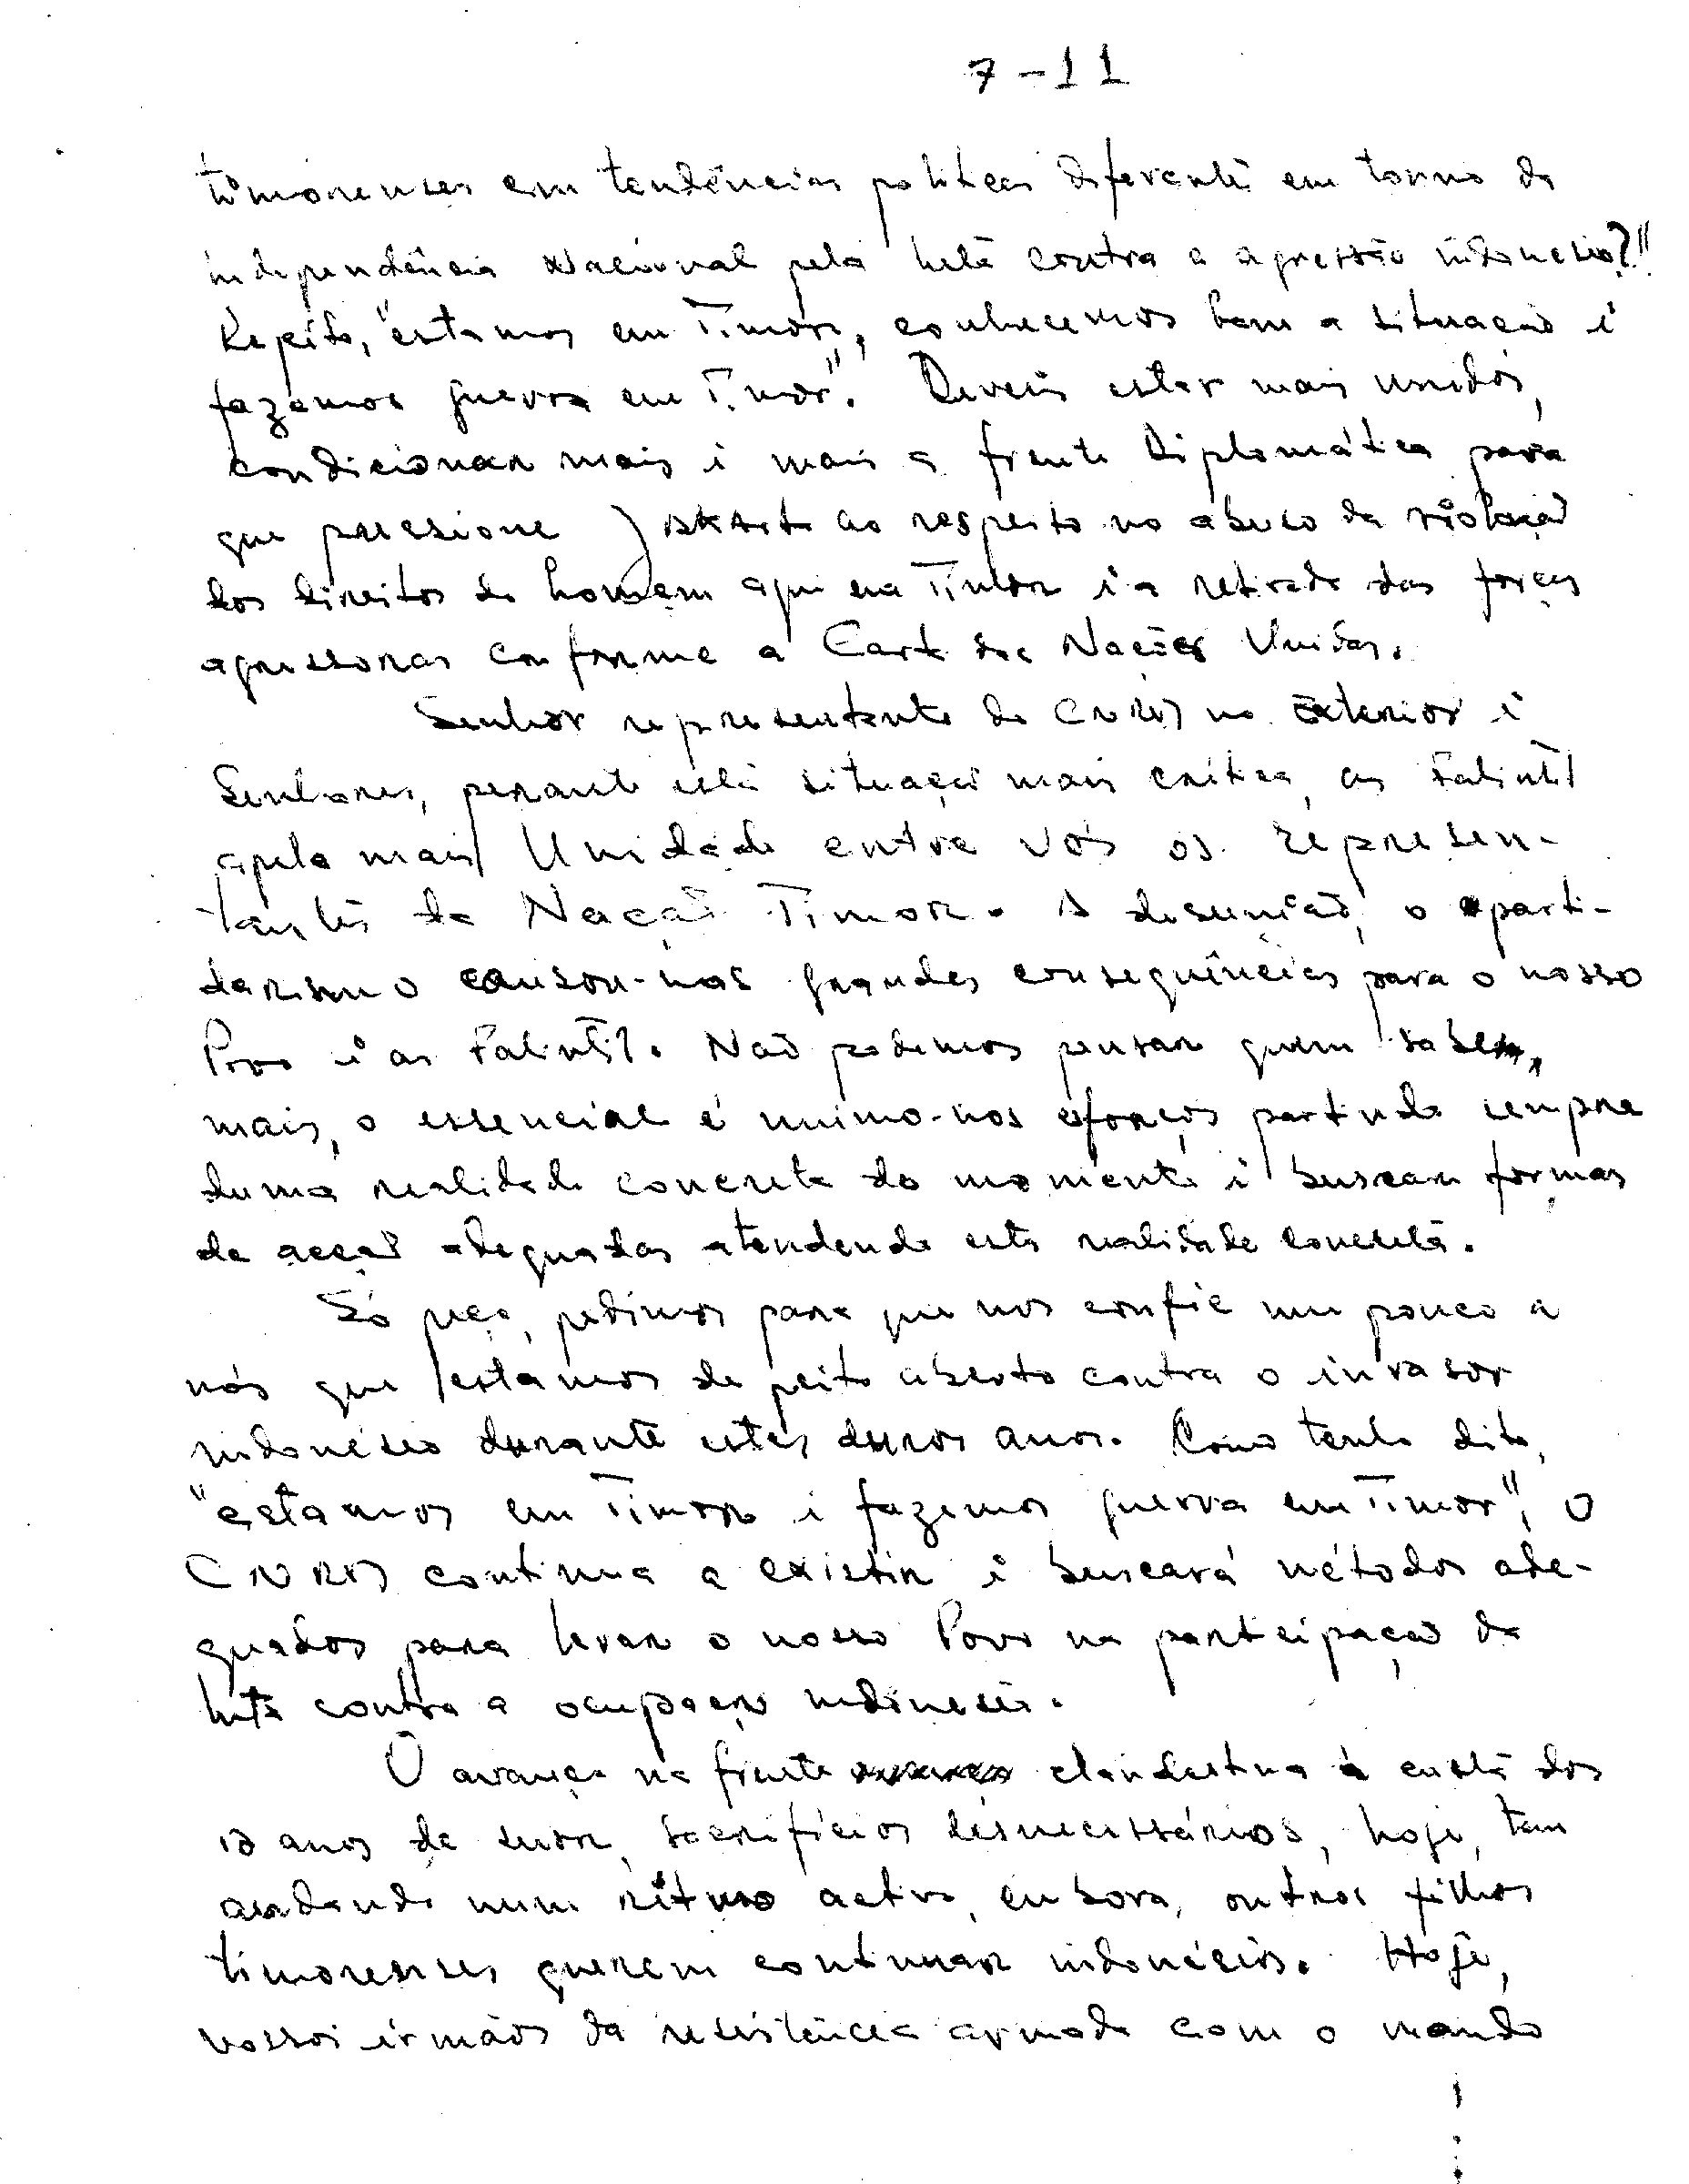 7-11
timorenses em tendências politicas diferentes em torno da
independência Nacional pela luta contra a agressão indonésia?"
Repito, "estamos em Timor, conhecemos bem a situação e
fazemos guerra em Timor". Deveis estar mais unidos,
condicionar mais e mais a frente Diplomática para
que pressione ao respeito no abuso da violação
dos direitos do homem aqui em Timor e a retirada das forças
agressoras conforme a Carta das Nações Unidas.
Senhor representante do CNRM no Exterior e
Senhores, perante esta situação mais crítica, as Falintil
apela mais Unidade entre vós os represen-
tantes da Nação Timor. A desunião, o parti-
darismo causou-nos grandes consequências para o nosso
Povo e as Falintil. Não podemos pensar quem sabe
mais, o essencial é unimo-nos esforços partindo sempre
duma realidade concreta do momento e buscar formas
de acção adequadas atendendo esta realidade concreta.
Só peço, pedimos para que nos confie um pouco a
nós que estamos de peito aberto contra o invasor
indonésio durante estes duros anos. Como tenho dito,
"estamos em Timor e fazemos guerra em Timor", O
CNRM continua a existir e buscará métodos ade-
quados para levar o nosso Povo na participação da
luta contra a ocupação indonésia.
O avanço na frente clandestina à custa dos
18 anos de suor, sacrifícios desnecessários, hoje, tem
andando num ritmo activo, embora, outros filhos
timorenses querem continuar indonésios. Hoje,
vossos irmãos da resistência armada com o mando